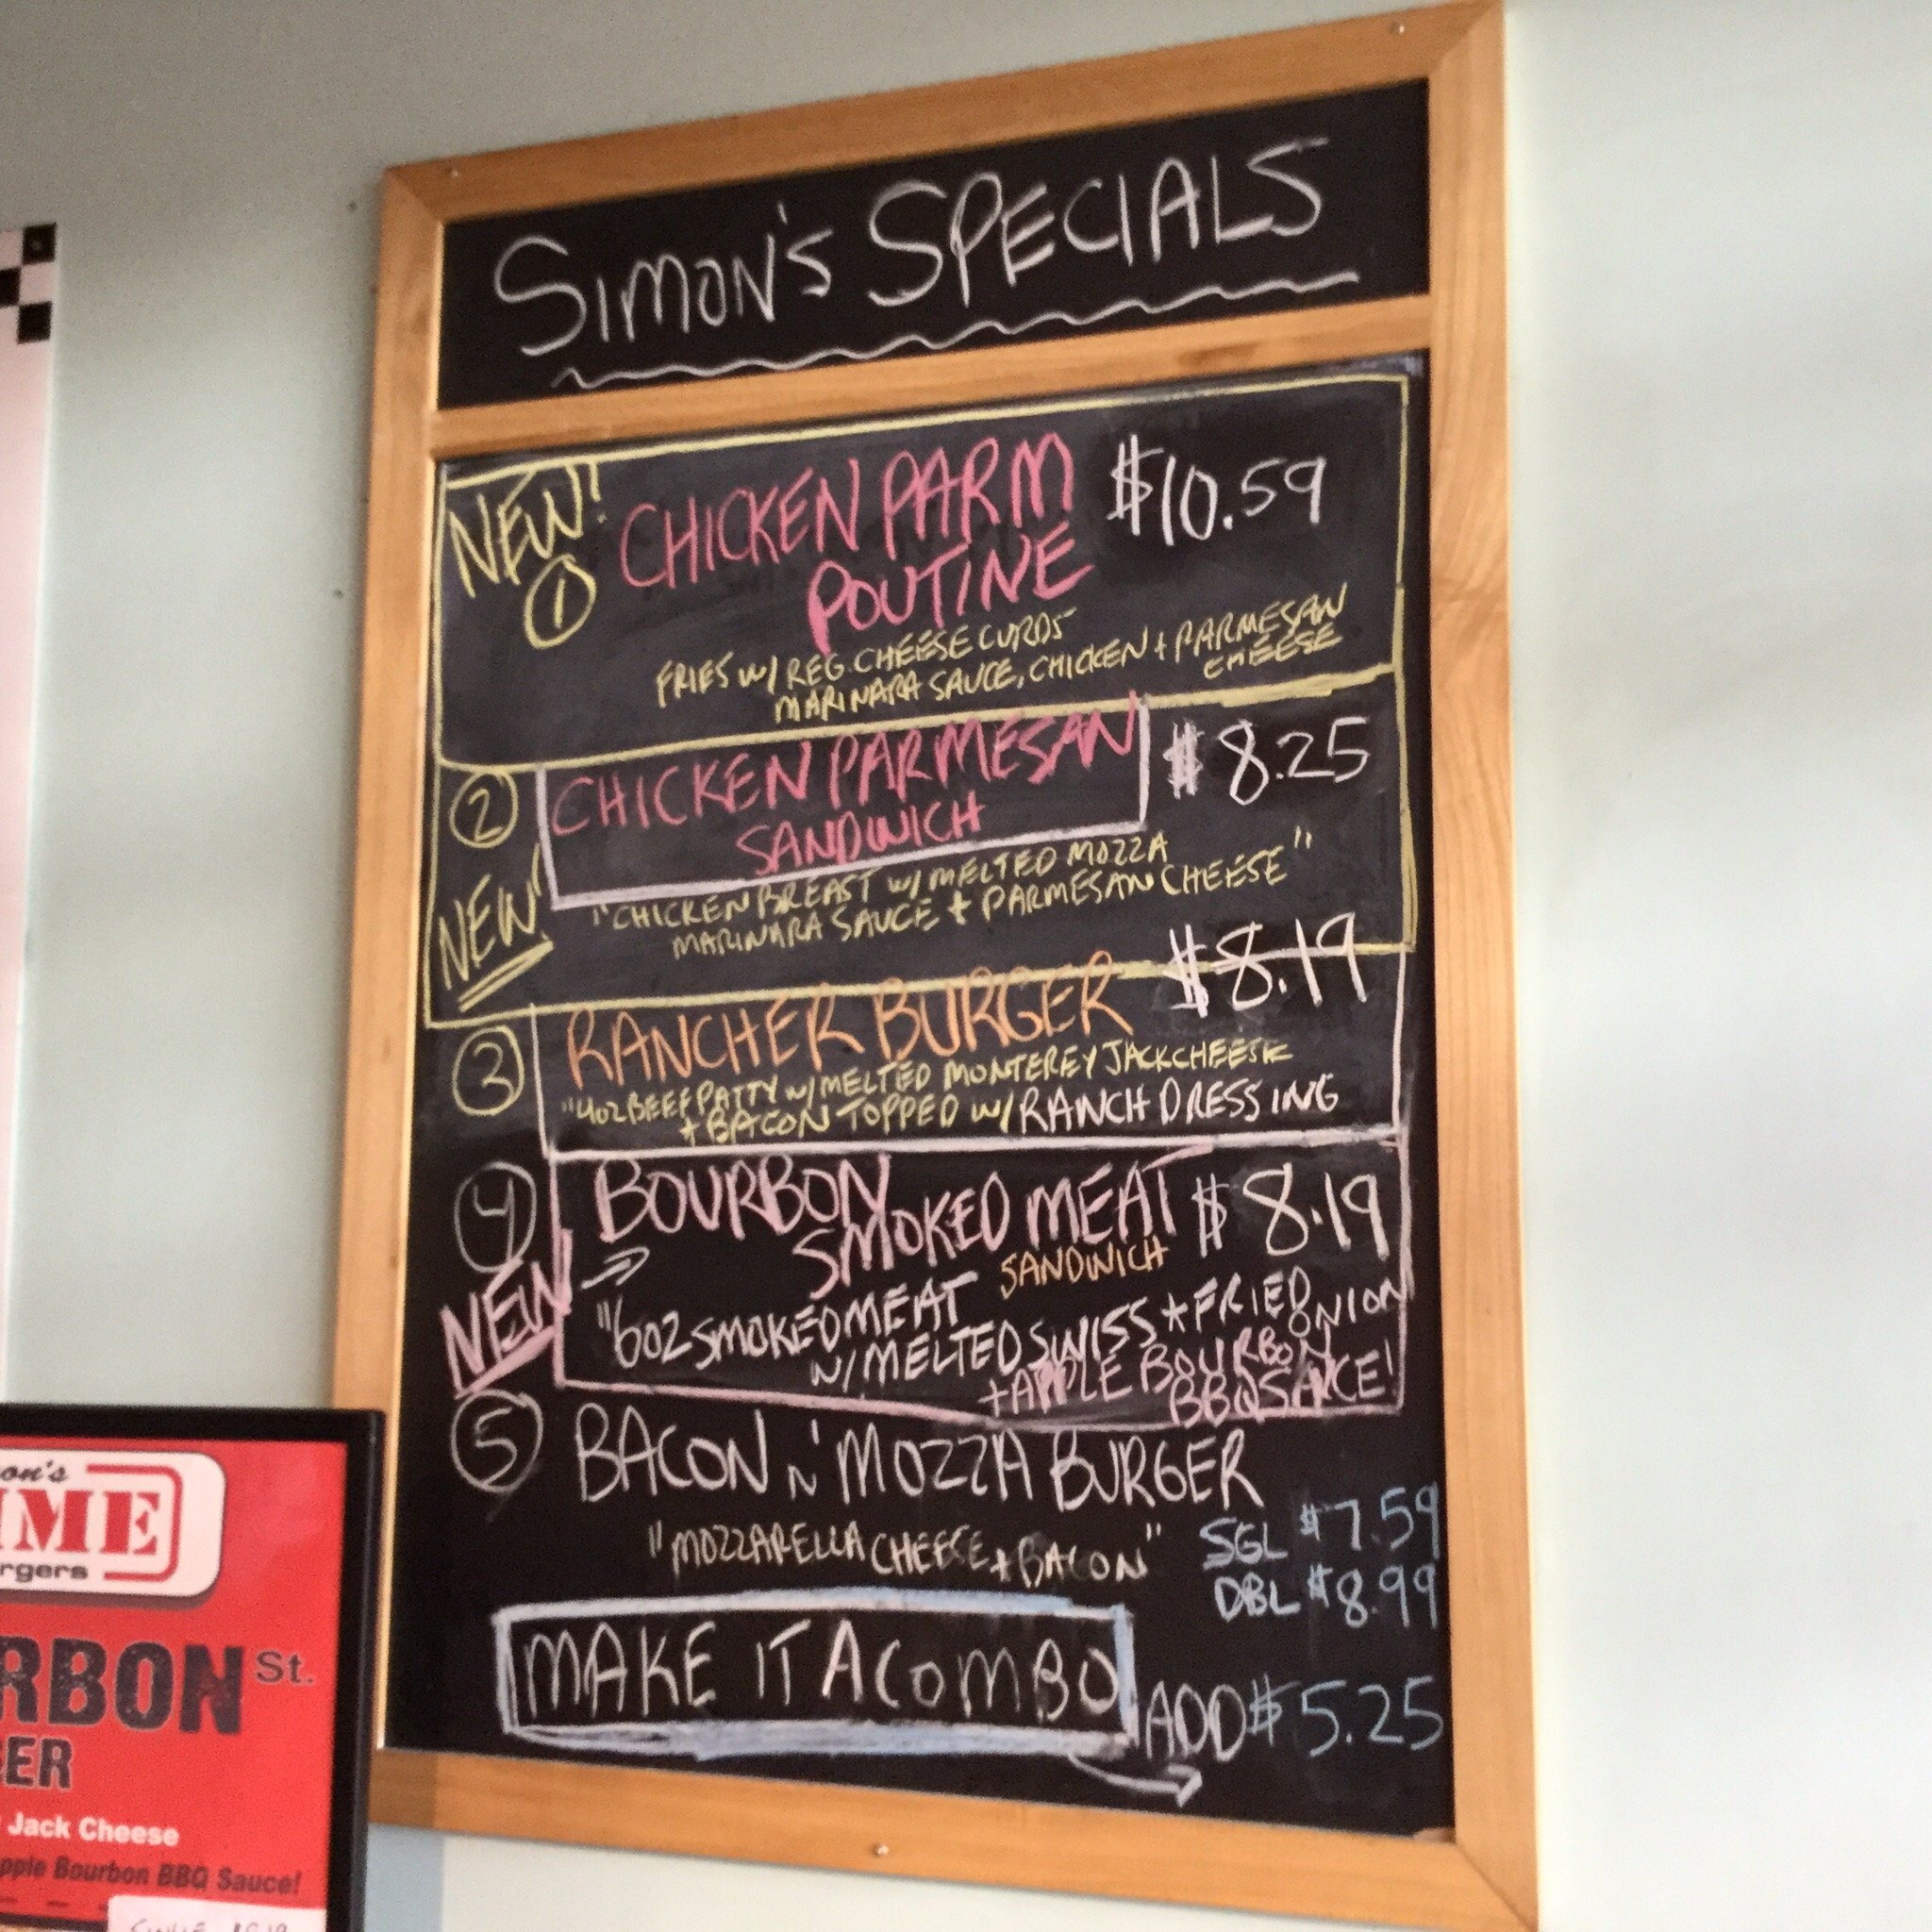 SIMON'S SPECIALS
NEW!
① CHICKEN PARM $10.59
POUTINE
FRIES W/ REG. CHEESE CURDS
MARINARA SAUCE, CHICKEN + PARMESAN
CHEESE
② CHICKEN PARMESAN $8.25
SANDWICH
NEW!
"CHICKEN BREAST W/ MELTED MOZZA
MARINARA SAUCE + PARMESAN CHEESE"
③ RANCHER BURGER $8.19
"4OZ BEEF PATTY W/ MELTED MONTEREY JACK CHEESE
+ BACON TOPPED W/ RANCH DRESSING
④ BOURBON
SMOKED MEAT $8.19
SANDWICH
NEW
"6OZ SMOKED MEAT
W/ MELTED SWISS + FRIED
ONION
+ APPLE BOURBON
BBQ SAUCE!
⑤ BACON N' MOZZA BURGER
"MOZZARELLA CHEESE + BACON"
SGL $7.59
DBL $8.99
MAKE IT A COMBO
ADD $5.25
on's
IME
rgers
RBON St.
ER
Jack Cheese
pple Bourbon BBQ Sauce!